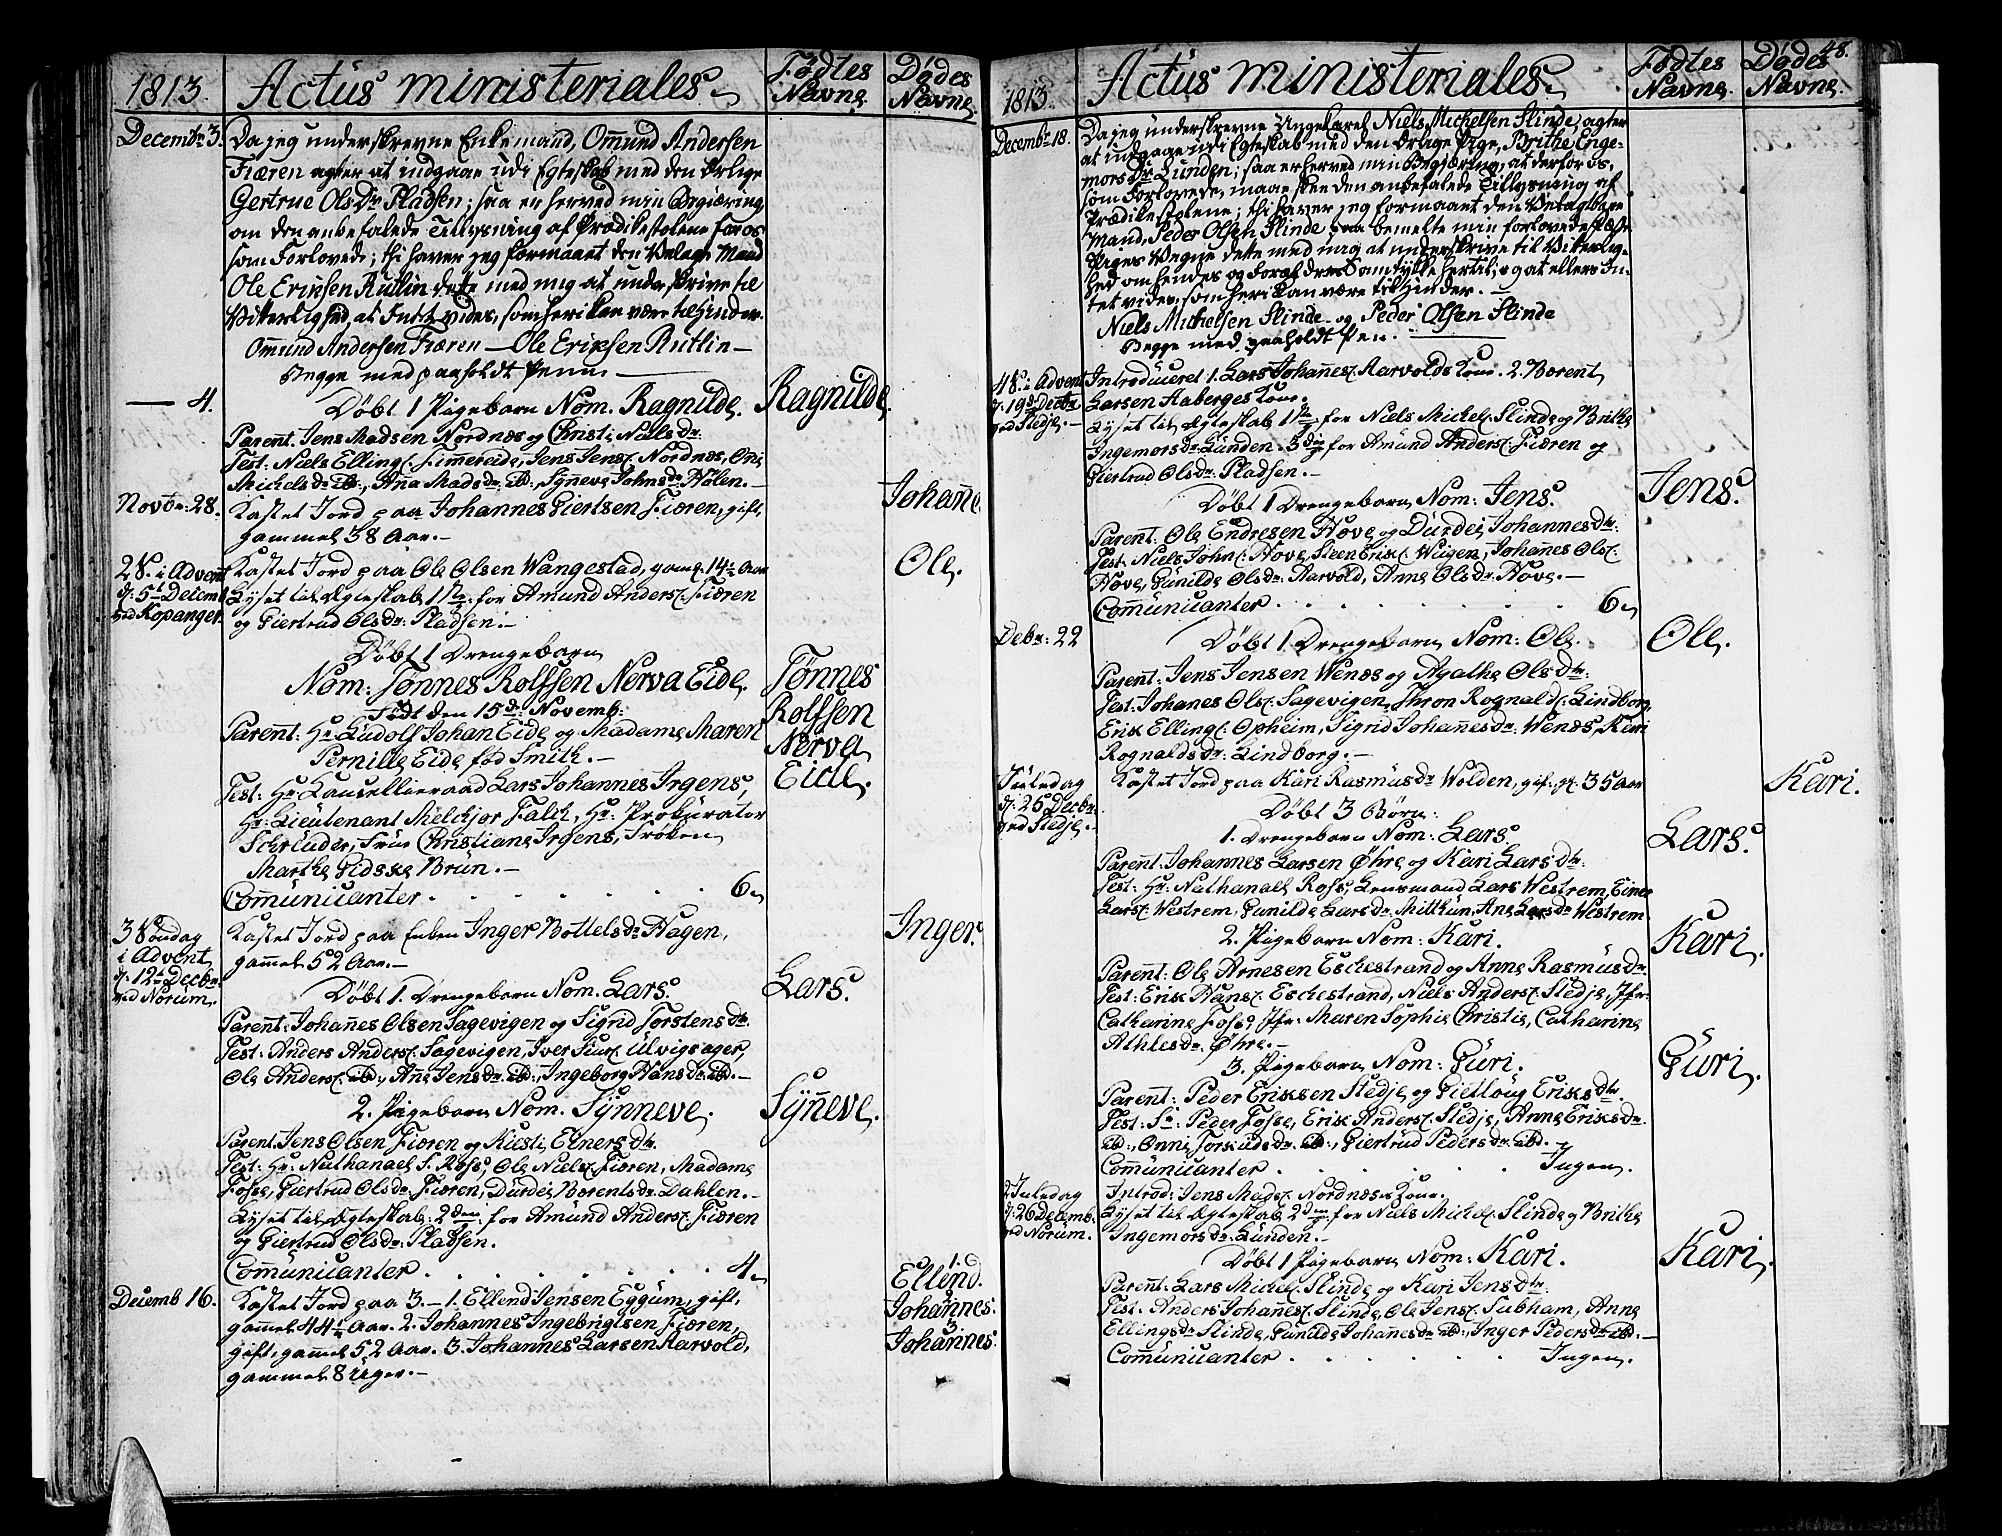 1813.
Actus ministeriales
Fødtes Navne.
Dødes Navne.
Decembr 3.
Da jeg underskrevne Enkemand, Omund Andersen
Fiæren agter at indgaae udi Egteskab med den Ærlige
Gertrue Olsdr Pladsen; saa er herved min Begiæring
om den anbefalede Tillysning af Prædikestolene for os
som Forlovede; thi haver jeg formaaet den Velagte Mand
Ole Eriksen Rutlin dette med mig at underskrive til
Vitterlighed, at Intet vides, som heri kan være til Hinder.
Omund Andersen Fiæren — Ole Eriksen Rutlin —
Begge med paaholdt Penn
— 4.
Døbt 1 Pigebarn Nom. Ragnilde.
Ragnilde.
Parent. Jens Madsen Nordnæs og Christi Nielsdr:
Test: Niels Ellings. Simmereide, Jens Jens. Nordnæs, Oñe
Michelsdr ibd:, Aña Madsdr: ibd:, Syñeve Johnsdr Hølen. —
Novbr: 28.
Kastet Jord paa Johannes Giertsen Fiæren, gift,
Johañe.
gammel 58 Aar. —
2 S. i Advent
Kastet Jord paa Ole Olsen Wangestad, gaml. 14½ Aar
Ole.
d. 5t Decemb
Lyset til Ægteskab 1ste for Amund Anders. Fiæren
ved Kopanger.
og Giertrud Olsdr: Pladsen. —
Døbt 1 Drengebarn
Nom: Tønnes Rolfsen Nerva Eide.
Tønnes
Rolfsen
Nerva
Eide.
Født den 15de Novemb:
Parent: Hr Ludolf Johan Eide og Madame Maren
Pernille Eide fød Smith. —
Test: Hr Cancellieraad Lars Johannes Irgens,
Hr: Lieutenant Melchior Falch, Hr: Prokurator
Schrüder, Frue Christiane Irgens, Frøken
Marthe Gidske Brün. —
Comunicanter . . . . . . 6
3 Søndag
i Advent
d. 12te Decbr
ved Norum.
Kastet Jord paa Enken Inger Bottelsdr Hagen,
Inger.
gammel 52 Aar. —
Døbt 1. Drengebarn Nom. Lars.
Lars.
Parent: Johañes Olsen Sagevigen og Sigrid Torstensdr.
Test: Anders Anders. Sagevigen, Iver Siurs. Ulvigsager,
Ole Anders. ibd:, Ane Jensdr: ibd:, Ingeborg Hansdr ibd. —
2. Pigebarn Nom. Synneve.
Syñeve.
Parent. Jens Olsen Fiæren og Kiesti Einersdr.
Test: Hr: Nathanael S. Ross, Ole Niels. Fiæren, Madame
Fosse, Giertrud Olsdr Fiæren, Durdei Børentsdr Dahlen. —
Lyset til Ægteskab: 2den for Amund Anders. Fiæren
og Giertrud Olsdr: Pladsen.
Comunicanter . . . . . . 4
Decemb 16.
Kastet Jord paa 3. — 1. Ellend Jensen Eggum, gift,
gamel 44½ Aar. 2. Johannes Ingebrigtsen Fiæren,
gift, gamel 52 Aar. 3. Johannes Larsen Aarvold,
gammel 8 Uger. —
1.
Ellend.
2
Johannes.
3.
Johannes.
1813.
Actus ministeriales
Fødtes Navne.
Dødes Navne.
48.
Decembr 18.
Da jeg underskrevne Ungekarl Niels Michelsen Slinde, agter
at indgaae udi Egteskab med den Ærlige Pige, Brithe Inge=
morsdr Lunden; saa er herved min Begiæring, at der for os,
som Forlovede, maae skee den anbefalede Tillysning af
Prædikestolene; thi haver jeg formaaet den Velagtbare
Mand, Peder Olsen Slinde paa bemelte min forlovede Fæste
Piges Vegne dette med mig at underskrive til Vitterlig=
hed om hendes og Forældres Samtykke hertil; og at ellers In=
tet vides, som heri kan være til Hinder. —
Niels Michelsen Slinde og Peder Olsen Slinde
Begge med paaholdt Pen.
4 S. i Advent
d. 19de Decbr
ved Stedje. —
Introduceret 1. Lars Johañes. Aarvolds Kone. 2. Børent
Larsen Aaberges Kone.
Lyset til Ægteskab 1ste for Niels Michels. Slinde og Brithe
Ingemorsdr: Lunden. 3die for Amund Anders. Fiæren og
Giertrud Olsdr: Pladsen. —
Døbt 1 Drengebarn Nom: Jens.
Jens.
Parent: Ole Endresen Hove og Durdei Johannesdr:
Test: Niels Johns: Hove, Steen Eriks. Wiigen, Johañes Ols:
Hove, Gunilde Olsdr: Aarvold, Anne Olsdr Hove. —
Comunicanter . . . . . . 6
Debr: 22
Døbt 1 Drengebarn Nom: Ole.
Ole.
Parent: Jens Jensen Wenæs og Agathe Olsdr
Test: Johanes Ols. Sagevigen, Thron Rognalds. Lindborg,
Erik Ellings: Opheim, Sigrid Johañesdr: Wenæs, Kari
Rognaldsdr: Lindborg. —
Juledag
d. 25 Decbr.
ved Stedje. —
Kastet Jord paa Kari Rasmusdr Wolden, gift, gl. 35 Aar
Kari.
Døbt 3 Børn:
1. Drengebarn Nom: Lars.
Lars.
Parent: Johannes Larsen Øhre og Kari Larsdr:
Test: Hr: Nathanael Ross, Lensmand Lars Westrem, Einer
Lars. Westrem, Gunilde Larsdr Mittkün, Ane Larsdr Westrem
2. Pigebarn Nom: Kari.
Kari.
Parent: Ole Arnesen Eschestrand og Anne Rasmusdr
Test: Erik Hans. Eschestrand, Niels Anders. Stedje, Jfr:
Catharine Foss, Jfr: Maren Sophie Christie, Catharine
Athlesdr. Øhre. —
3. Pigebarn Nom: Guri.
Guri.
Parent: Peder Eriksen Stedje og Gietloug Eriksdr.
Test: Sr: Peder Fosse, Erik Anders. Stedje, Anne Eriksdr
ibd:, Onni Torkildsdr. ibd:, Giertrud Pedersdr ibd. —
Comunicanter . . . . . . Ingen.
2 Juledag
d. 26 Decemb.
ved Norum.
Introd: Jens Mads. Nordnæses Kone.
Lyset til Ægteskab 2den for Niels Michels. Slinde og Brithe
Ingemorsdr: Lunden. —
Døbt 1 Pigebarn Nom: Kari.
Kari.
Parent: Lars Michels. Slinde og Kari Jensdr:
Test: Anders Johañes. Slinde, Ole Jens. Tubham, Anne
Ellingsdr Slinde, Gunilde Johañesdr ibd:, Inger Pedersdr ibd: —
Comunicanter . . . . . . Ingen.